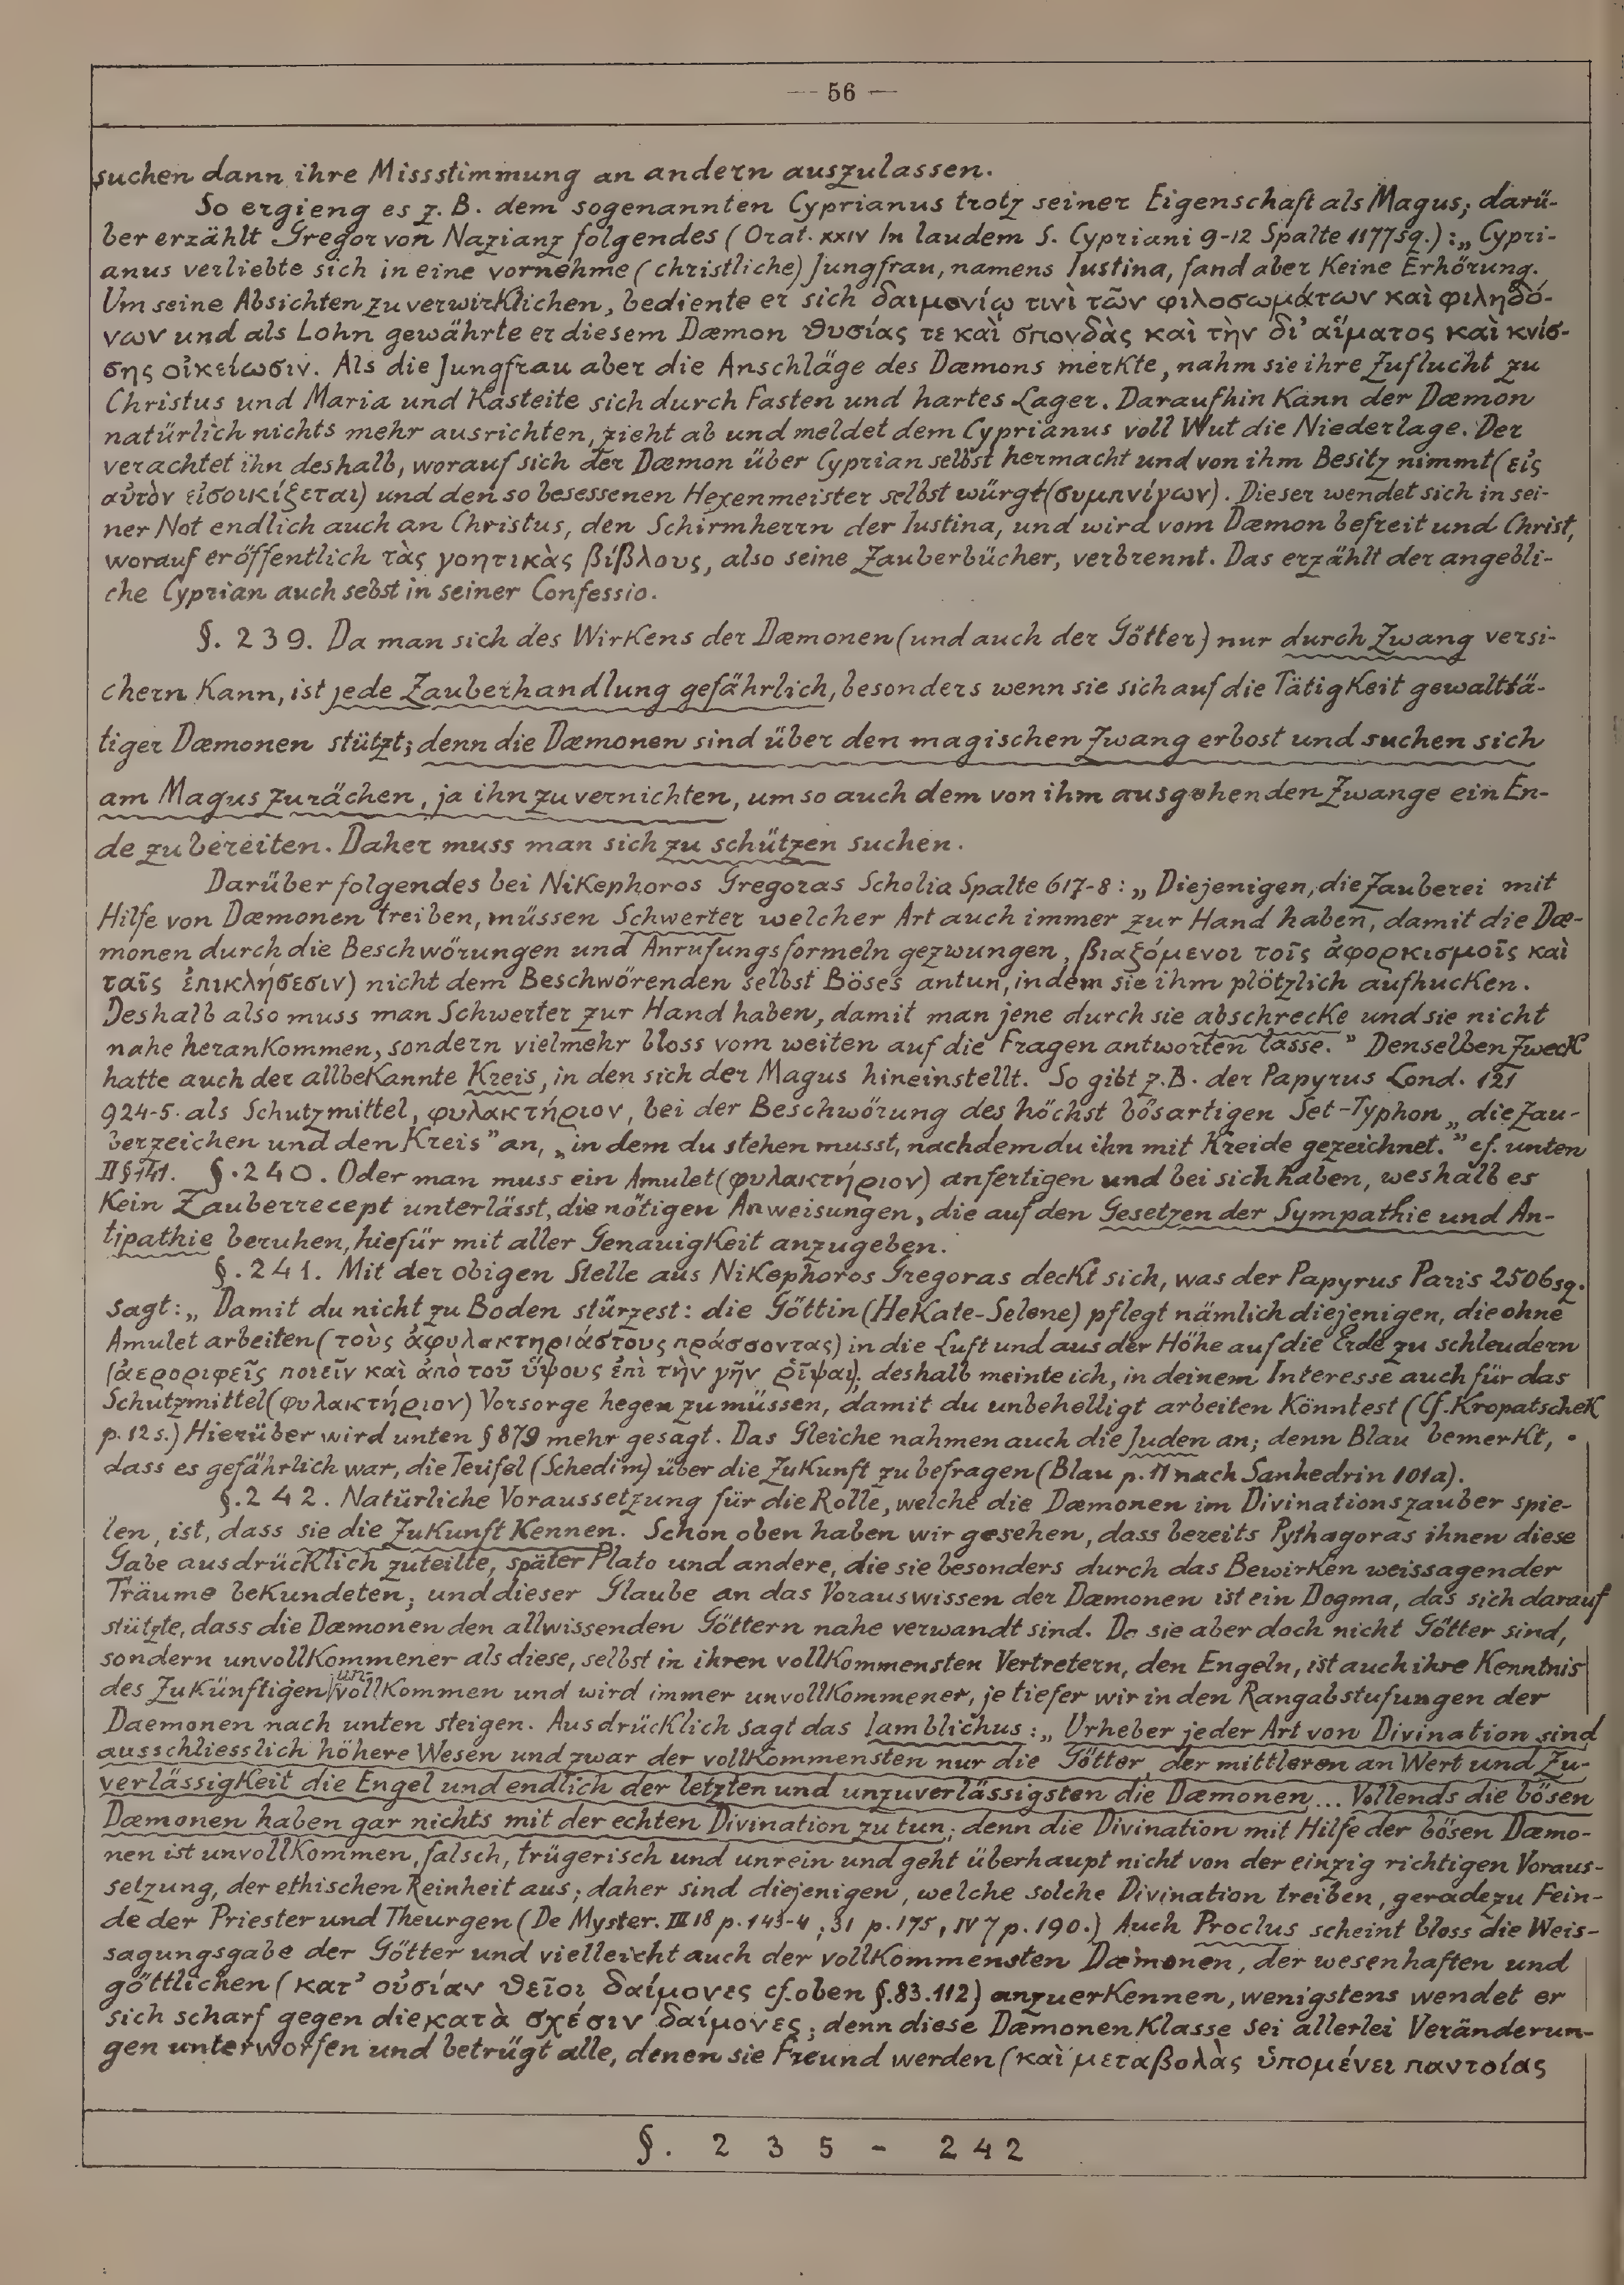 — 56 —
suchen dann ihre Missstimmung an andern auszulassen.
So ergieng es z. B. dem sogenannten Cyprianus trotz seiner Eigenschaft als Magus; darü-
ber erzählt Gregor von Nazianz folgendes (Orat. XXIV In laudem S. Cypriani 9-12 Spalte 1177 sq.): „Cypri-
anus verliebte sich in eine vornehme (christliche) Jungfrau, namens Iustina, fand aber Keine Erhörung.
Um seine Absichten zu verwirklichen, bediente er sich δαιμονίῳ τινὶ τῶν φιλοσωμάτων καὶ φιληδό-
νων und als Lohn gewährte er diesem Dæmon θυσίας τε καὶ σπονδὰς καὶ τὴν δι' αἵματος καὶ κνίσ-
σης οἰκείωσιν. Als die Jungfrau aber die Anschläge des Dæmons merkte, nahm sie ihre Zuflucht zu
Christus und Maria und Kasteite sich durch Fasten und hartes Lager. Daraufhin Kann der Dæmon
natürlich nichts mehr ausrichten, zieht ab und meldet dem Cyprianus voll Wut die Niederlage. Der
verachtet ihn deshalb, worauf sich der Dæmon über Cyprian selbst hermacht und von ihm Besitz nimmt (εἰς
αὐτὸν εἰσοικίζεται) und den so besessenen Hexenmeister selbst würgt (συμπνίγων). Dieser wendet sich in sei-
ner Not endlich auch an Christus, den Schirmherrn der Iustina, und wird vom Dæmon befreit und Christ,
worauf er öffentlich τὰς γοητικὰς βίβλους, also seine Zauberbücher, verbrennt. Das erzählt der angebli-
che Cyprian auch sebst in seiner Confessio.
§. 239. Da man sich des Wirkens der Dæmonen (und auch der Götter) nur durch Zwang versi-
chern Kann, ist jede Zauberhandlung gefährlich, besonders wenn sie sich auf die Tätigkeit gewalttä-
tiger Dæmonen stützt; denn die Dæmonen sind über den magischen Zwang erbost und suchen sich
am Magus zu rächen, ja ihn zu vernichten, um so auch dem von ihm ausgehenden Zwange ein En-
de zu bereiten. Daher muss man sich zu schützen suchen.
Darüber folgendes bei Nikephoros Gregoras Scholia Spalte 617-8: „Diejenigen, die Zauberei mit
Hilfe von Dæmonen treiben, müssen Schwerter welcher Art auch immer zur Hand haben, damit die Dæ-
monen durch die Beschwörungen und Anrufungsformeln gezwungen, βιαζόμενοι τοῖς ἀφορκισμοῖς καὶ
ταῖς ἐπικλήσεσιν) nicht dem Beschwörenden selbst Böses antun, indem sie ihm plötzlich aufhucken.
Deshalb also muss man Schwerter zur Hand haben, damit man jene durch sie abschrecke und sie nicht
nahe heranKommen, sondern vielmehr bloss vom weiten auf die Fragen antworten lasse.” Denselben Zweck
hatte auch der allbekannte Kreis, in den sich der Magus hineinstellt. So gibt z.B. der Papyrus Lond. 121
924-5 als Schutzmittel, φυλακτήριον, bei der Beschwörung des höchst bösartigen Set-Typhon „die Zau-
berzeichen und den Kreis” an, „in dem du stehen musst, nachdem du ihn mit Kreide gezeichnet.” cf. unten
II § 141. §. 240. Oder man muss ein Amulet (φυλακτήριον) anfertigen und bei sich haben, weshalb es
Kein Zauberrecept unterlässt, die nötigen Anweisungen, die auf den Gesetzen der Sympathie und An-
tipathie beruhen, hiefür mit aller Genauigkeit anzugeben.
§. 241. Mit der obigen Stelle aus Nikephoros Gregoras deckt sich, was der Papyrus Paris 2506 sq.
sagt: „Damit du nicht zu Boden stürzest: die Göttin (Hekate-Selene) pflegt nämlich diejenigen, die ohne
Amulet arbeiten (τοὺς ἀφυλακτηριάστους πράσσοντας) in die Luft und aus der Höhe auf die Erde zu schleudern
(ἀεροριφεῖς ποιεῖν καὶ ἀπὸ τοῦ ὕψους ἐπὶ τὴν γῆν ῥῖψαι); deshalb meinte ich, in deinem Interesse auch für das
Schutzmittel (φυλακτήριον) Vorsorge hegen zu müssen, damit du unbehelligt arbeiten Könntest (Cf. Kropatschek
p. 12 s.) Hierüber wird unten § 879 mehr gesagt. Das Gleiche nahmen auch die Juden an; denn Blau bemerkt,
dass es gefährlich war, die Teufel (Schedim) über die Zukunft zu befragen (Blau p. 11 nach Sanhedrin 101a).
§. 242. Natürliche Voraussetzung für die Rolle, welche die Dæmonen im Divinationszauber spie-
len, ist, dass sie die Zukunft Kennen. Schon oben haben wir gesehen, dass bereits Pythagoras ihnen diese
Gabe ausdrücklich zuteilte, später Plato und andere, die sie besonders durch das Bewirken weissagender
Träume bekundeten; und dieser Glaube an das Vorauswissen der Dæmonen ist ein Dogma, das sich darauf
stützte, dass die Dæmonen den allwissenden Göttern nahe verwandt sind. Da sie aber doch nicht Götter sind,
sondern unvollkommener als diese, selbst in ihren vollkommensten Vertretern, den Engeln, ist auch ihre Kenntnis
des Zukünftigen unvollkommen und wird immer unvollkommener, je tiefer wir in den Rangabstufungen der
Daemonen nach unten steigen. Ausdrücklich sagt das Iamblichus: „Urheber jeder Art von Divination sind
ausschliesslich höhere Wesen und zwar der vollkommensten nur die Götter, der mittleren an Wert und Zu-
verlässigkeit die Engel und endlich der letzten und unzuverlässigsten die Dæmonen... Vollends die bösen
Dæmonen haben gar nichts mit der echten Divination zu tun; denn die Divination mit Hilfe der bösen Dæmo-
nen ist unvollkommen, falsch, trügerisch und unrein und geht überhaupt nicht von der einzig richtigen Voraus-
setzung, der ethischen Reinheit aus; daher sind diejenigen, welche solche Divination treiben, geradezu Fein-
de der Priester und Theurgen (De Myster. III 18 p. 143-4; 31 p. 175, IV 7 p. 190.) Auch Proclus scheint bloss die Weis-
sagungsgabe der Götter und vielleicht auch der vollkommensten Dæmonen, der wesenhaften und
göttlichen (κατ' οὐσίαν θεῖοι δαίμονες cf. oben §. 83. 112) anzuerkennen, wenigstens wendet er
sich scharf gegen die κατὰ σχέσιν δαίμονες; denn diese Dæmonenklasse sei allerlei Veränderun-
gen unterworfen und betrügt alle, denen sie Freund werden (καὶ μεταβολὰς ὑπομένει παντοίας
§. 235 - 242